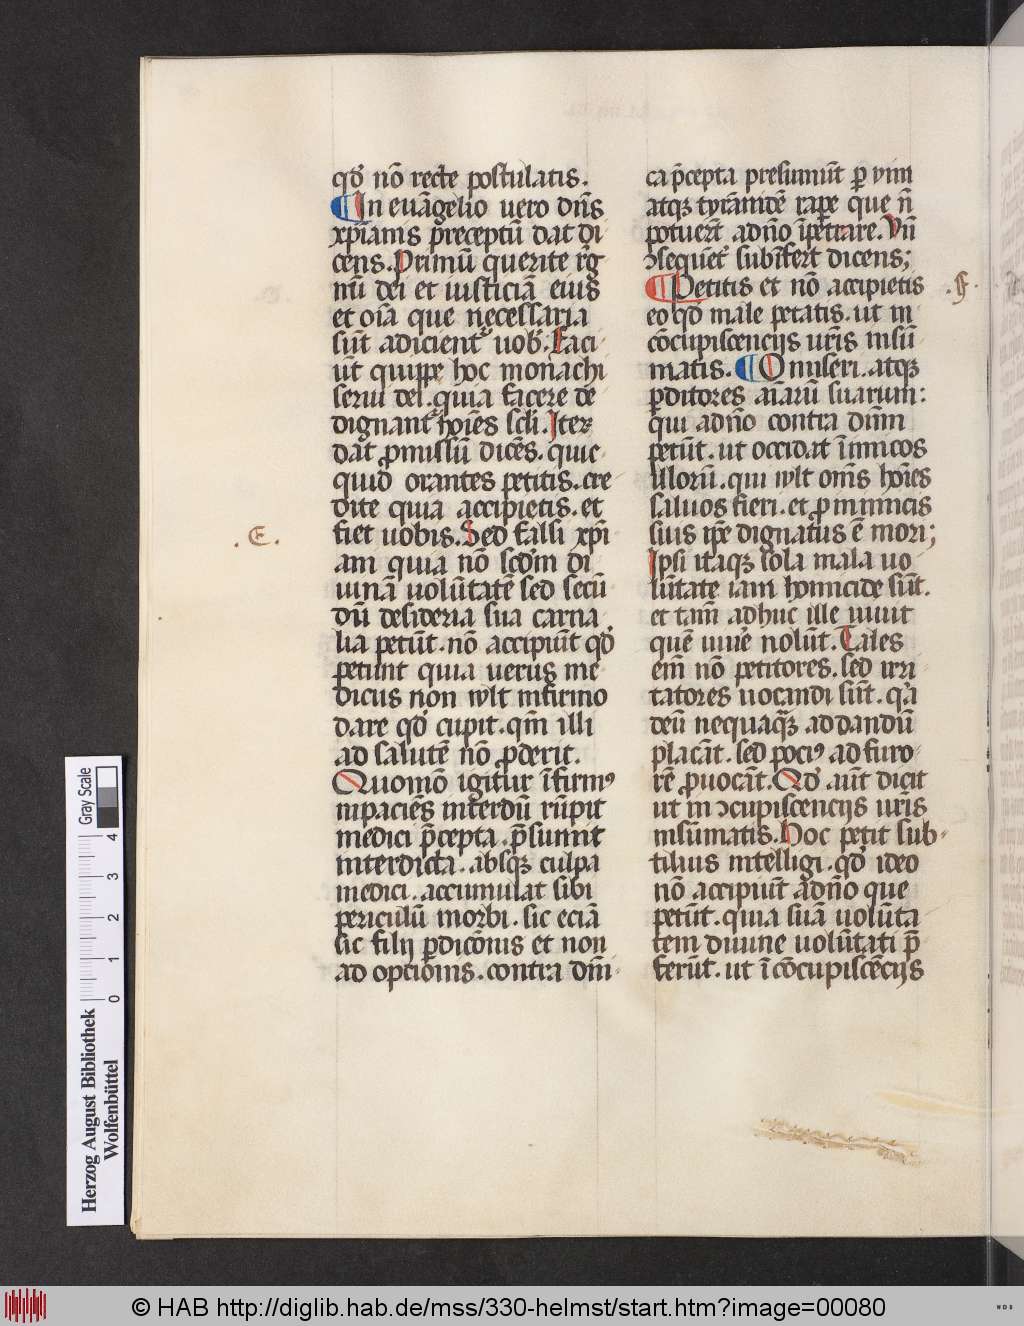 qď nō recte postulatis.
¶In euāgelio vero dn̄s
xp̄ianis p̄receptū dat di
cens. Primū querite rēg
nū dei et iusticiā eius
et oīa que necessaria
sūt adicient᷑ uob̄. Faci
ūt quippe hoc monachi
serui dei. quia facere de
dignant᷑ hoīes scl̄i. Iteꝝ
dāt ꝓmissū dicēs. quic
quid orantes petitis. cre
dite quia accipietis. et
.E.
fiet uobis. Sed falsi xp̄i
ani quia nō scđm di
uinā uolūtatē sed secū
dū desideria sua carna
lia petūt. nō accipiūt qď
petunt quia uerus me
dicus non wlt infirmo
dare qď cupit. qm̄ illi
ad salutē nō ꝓderit.
Quomō igitur īfirmꝰ
impaciēs interdū rūpit
medici p̄cepta. p̄sumit
interdicta. absqꝫ culpa
medici. accumulat sibi
periculū morbi. sic eciā
sic filij ꝑdicōnis et non
adoptionis. contra dīni
ca p̄cepta presumūt ꝑ vim
atqꝫ tyrānidē rapere que n̄
potuerūt ad n̄o īpetrare. Vn̄
ꝯsequēt᷑ subīfert dicens;
¶Petitis et nō accipietis
.f.
eo qď male petatis. ut in
cōcupiscencijs ur̄is insū
matis. ¶O miseri. atqꝫ
ꝑditores aīarū suarum:
qui a dn̄o contra dn̄m
petūt. ut occidat īimicos
illorū. qui wlt om̄s hoīes
saluos fieri. et ꝓ inimicis
suis ip̄e dignatus ē mori;
Ipsi itaqꝫ sola mala uo
lūtate iam homicide sūt.
et tam̄ adhuc ille uiuit
quē uiue᷑ nolūt. Tales
em̄ nō petitores. sed irri
tatores uocandi sūt. q̄a
deū nequaq̄ꝫ ad dandū
placāt. sed pociꝰ ad furo
rē ꝓuocāt. Qď aūt dicit
ut in ꝯcupiscencijs ur̄is
insūmatis. Hoc petit sub
tilius intelligi. qď ideo
nō accipiūt a dn̄o que
petūt. quia suā uolūta
tem diuine uolūtati p̄
ferūt. ut ī cōcupiscēcijs
Herzog August Bibliothek
Wolfenbüttel
0 1 2 3 4
Gray Scale
© HAB http://diglib.hab.de/mss/330-helmst/start.htm?image=00080